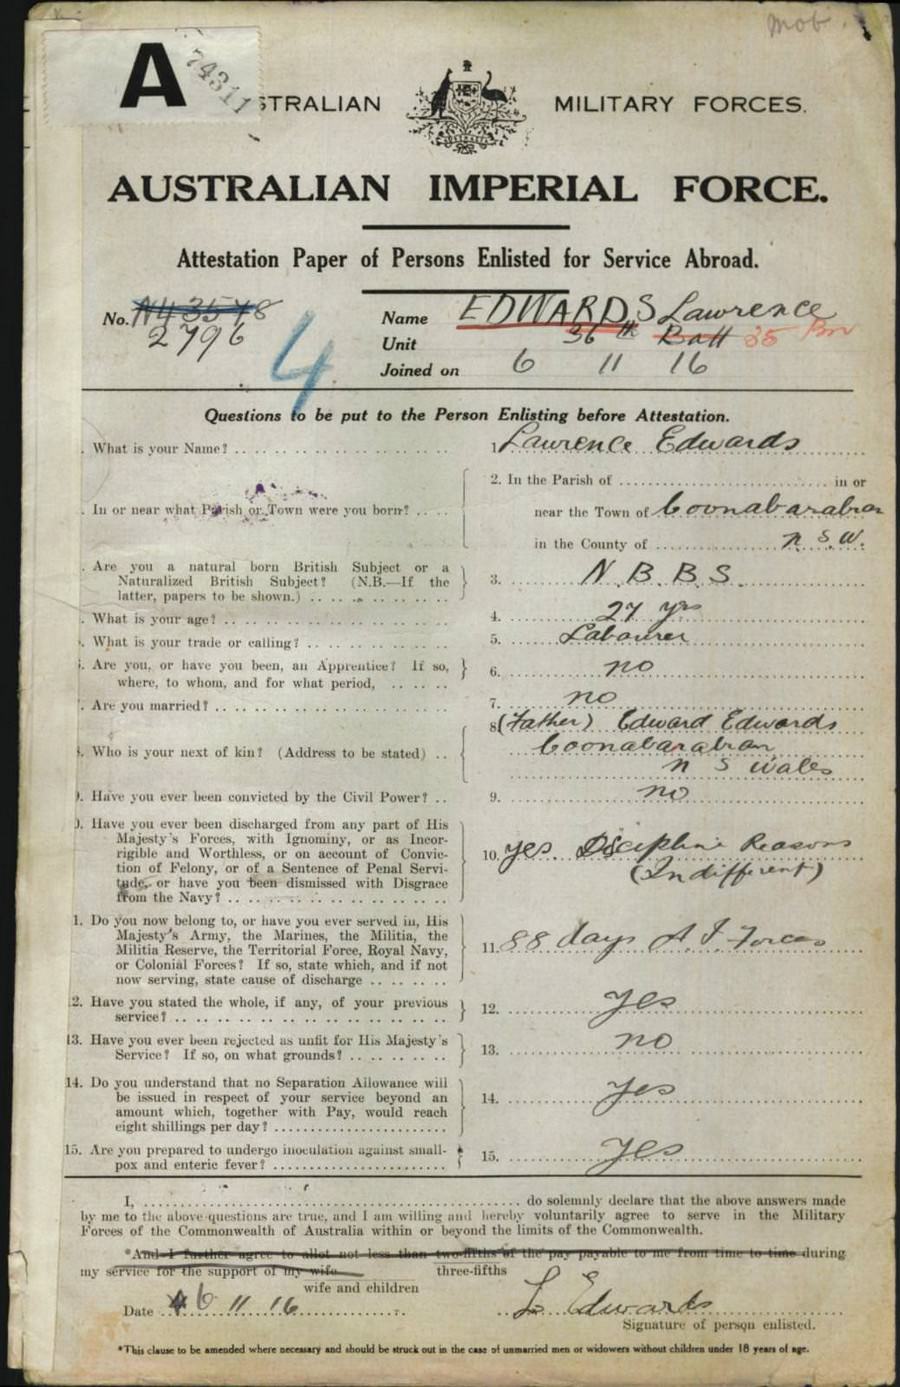 mob.
A 74311
STRALIAN MILITARY FORCES.
AUSTRALIAN IMPERIAL FORCE.
Attestation Paper of Persons Enlisted for Service Abroad.
No. N43548 Name EDWARDS Lawrence
2796 Unit 36th Batt 35 Bn
4 Joined on 6 11 16
Questions to be put to the Person Enlisting before Attestation.
. What is your Name? 1. Lawrence Edwards
2. In the Parish of in or
. In or near what Parish or Town were you born? near the Town of Coonabarabran
in the County of N S W.
. Are you a natural born British Subject or a
Naturalized British Subject? (N.B.—If the 3. N. B. B. S.
latter, papers to be shown.)
. What is your age? 4. 27 yrs
. What is your trade or calling? 5. Labourer
. Are you, or have you been, an Apprentice? If so, 6. no
where, to whom, and for what period,
. Are you married? 7. no
8 (Father) Edward Edwards
. Who is your next of kin? (Address to be stated) Coonabarabran
N S Wales
. Have you ever been convicted by the Civil Power? 9. no
. Have you ever been discharged from any part of His
Majesty's Forces, with Ignominy, or as Incor-
rigible and Worthless, or on account of Convic- 10. yes. Discipline Reasons
tion of Felony, or of a Sentence of Penal Servi- (Indifferent)
tude, or have you been dismissed with Disgrace
from the Navy?
1. Do you now belong to, or have you ever served in, His
Majesty's Army, the Marines, the Militia, the
Militia Reserve, the Territorial Force, Royal Navy, 11. 88 days A I Forces
or Colonial Forces? If so, state which, and if not
now serving, state cause of discharge
2. Have you stated the whole, if any, of your previous 12. yes
service?
13. Have you ever been rejected as unfit for His Majesty's 13. no
Service? If so, on what grounds?
14. Do you understand that no Separation Allowance will
be issued in respect of your service beyond an 14. yes
amount which, together with Pay, would reach
eight shillings per day?
15. Are you prepared to undergo inoculation against small- 15. yes
pox and enteric fever?
I, do solemnly declare that the above answers made
by me to the above questions are true, and I am willing and hereby voluntarily agree to serve in the Military
Forces of the Commonwealth of Australia within or beyond the limits of the Commonwealth.
*And I further agree to allot not less than two-fifths of the pay payable to me from time to time during
my service for the support of my wife three-fifths
wife and children
Date 6 11 16 L Edwards
Signature of person enlisted.
*This clause to be amended where necessary and should be struck out in the case of unmarried men or widowers without children under 18 years of age.